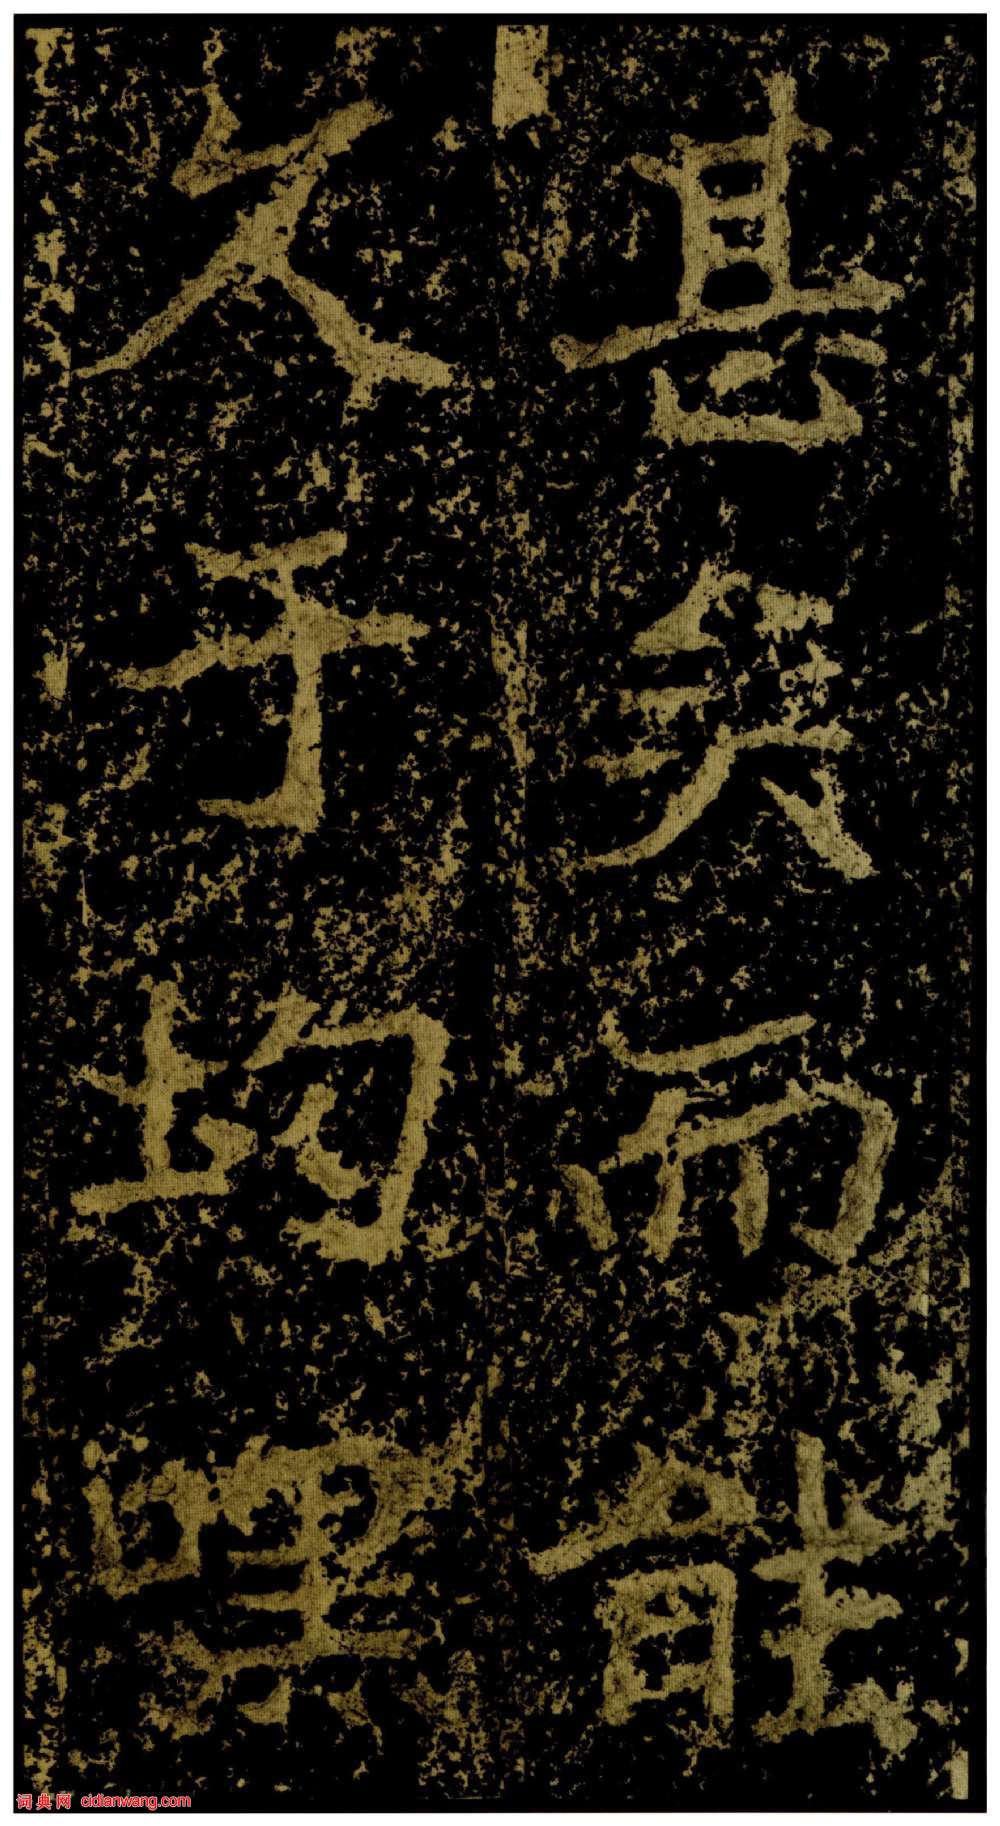 甚而能
久于均
词典网 cidianwang.com